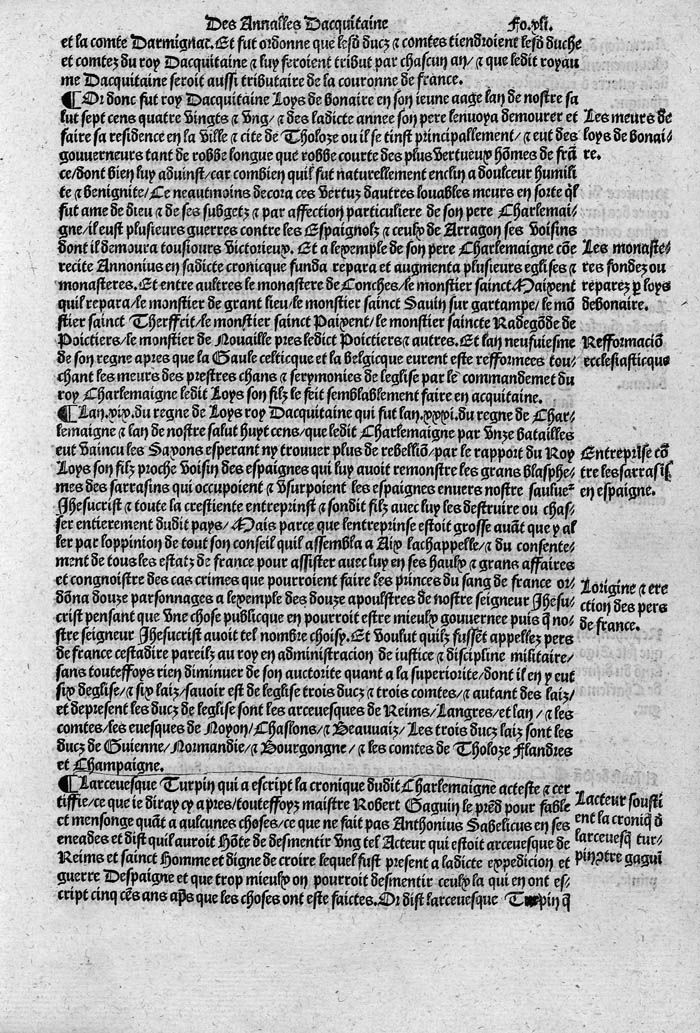 Des Annalles Dacquitaine Fo.xli.
et la comte Darmignac. Et fut ordonne que lesd ducz ⁊ comtes tiendroient lesd duche
et comtez du roy Dacquitaine ⁊ luy feroient tribut par chascun an/ ⁊ que ledit royau
me Dacquitaine seroit aussi tributaire de la couronne de france.
¶ Or donc fut roy Dacquitaine Loys de bonaire en son ieune aage lan de nostre sa
lut sept cens quatre vingts ⁊ vng/ ⁊ des ladicte annee son pere lenuoya demourer et
faire sa residence en la ville ⁊ cite de Tholoze ou il se tinst principallement/ ⁊ eut des
gouuerneurs tant de robbe longue que robbe courte des plus vertueux hõmes de frã
ce/dont bien luy aduinst/car combien quil fut naturellement enclin a doulceur humili
te ⁊ benignite/ Ce neautmoins decora ces vertuz dautres louables meurs en sorte ql
fut ame de dieu ⁊ de ses subgetz ⁊ par affection particuliere de son pere Charlemai/
gne/il eust plusieurs guerres contre les Espaignolz ⁊ ceulx de Arragon ses voisins
dont il demoura tousiours victorieux. Et a lexemple de son pere Charlemaigne cõe
recite Annonius en sadicte cronicque funda repara et augmenta plusieurs eglises ⁊
monasteres. Et entre aultres le monastere de Conches/le monstier sainct Maixent
quil repara/le monstier de grant lieu/le monstier sainct Sauin sur gartampe/le mõ
stier sainct Therffcit/le monstier sainct Paixent/le monstier saincte Radegõde de
Poictiers/le monstier de Nouaille pres ledict Poictiers ⁊ autres. Et lan neufuiesme
de son regne apres que la Gaule celticque et la belgicque eurent este refformees tou/
chant les meurs des prestres chans ⁊ serymonies de leglise par le commandemet du
roy Charlemaigne ledit Loys son filz le feit semblablement faire en acquitaine.
¶ Lan.xix.du regne de Loys roy Dacquitaine qui fut lan.xxxi.du regne de Char/
lemaigne ⁊ lan de nostre salut huyt cens/que ledit Charlemaigne par vnze batailles
eut vaincu les Saxons esperant ny trouuer plus de rebelliõ/par le rapport du Roy
Loys son filz proche voisin des espaignes qui luy auoit remonstre les grans blasphe/
mes des sarrasins qui occupoient ⁊ vsurpoient les espaignes enuers nostre saulueᷣ
Jhesucrist ⁊ toute la crestiente entreprinst ⁊ sondit filz auec luy les destruire ou chas/
ser entierement dudit pays/ Mais parce que lentreprinse estoit grosse auãt que y al
ler par loppinion de tout son conseil quil assembla a Aix lachappelle/⁊ du consente/
ment de tous les estatz de france pour assister auec luy en ses haulx ⁊ grans affaires
et congnoistre des cas crimes que pourroient faire les princes du sang de france or/
dõna douze parsonnages a lexemple des douze apoulstres de nostre seigneur Jhesu/
crist pensant que vne chose publicque en pourroit estre mieulx gouuernee puis q̃ no/
stre seigneur Jhesucrist auoit tel nombre choisy. Et voulut quilz fussẽt appellez pers
de france cestadire pareilz au roy en administracion de iustice ⁊ discipline militaire/
sans touteffoys rien diminuer de son auctorite quant a la superiorite/dont il en y eut
six deglise/⁊ six laiz/sauoir est de leglise trois ducz ⁊ trois comtes/⁊ autant des laiz/
et depresent les ducz de leglise sont les arceuesques de Reims/Langres/et lan / ⁊ les
comtes/les euesques de Noyon/Chaslons/⁊ Beauuaiz/ Les trois ducz laiz sont les
ducz de Guienne/Normandie/⁊ Bourgongne/ ⁊ les comtes de Tholoze Flandres
et Champaigne.
¶ Larceuesque Turpin qui a escript la cronique dudit Charlemaigne acteste ⁊ cer
tiffie/ce que ie diray cy apres/touteffoyz maistre Robert Gaguin le prẽd pour fable
et mensonge quãt a aulcunes choses/ce que ne fait pas Anthonius Sabelicus en ses
eneades et dist quil auroit Hõte de desmentir vng tel Acteur qui estoit arceuesque de
Reims et sainct Homme et digne de croire lequel fust present a ladicte expedicion et
guerre Despaigne et que trop mieulx on pourroit desmentir ceulx la qui en ont es/
cript cinq cẽs ans aps̃ que les choses ont este faictes. Or dist larceuesque Turpin q̃
Les meurs de
loys de bonai/
re.
Les monaste/
res fondez ou
reparez p loys
debonaire.
Refformaciõ
ecclesiasticque
Entreprise cõ
tre les sarrasis
en espaigne.
Lorigine ⁊ ere
ction des pers
de france.
Lacteur sousti
ent la croniq̃ ð
larceuesq̃ tur/
pin ↄtre gaguĩ